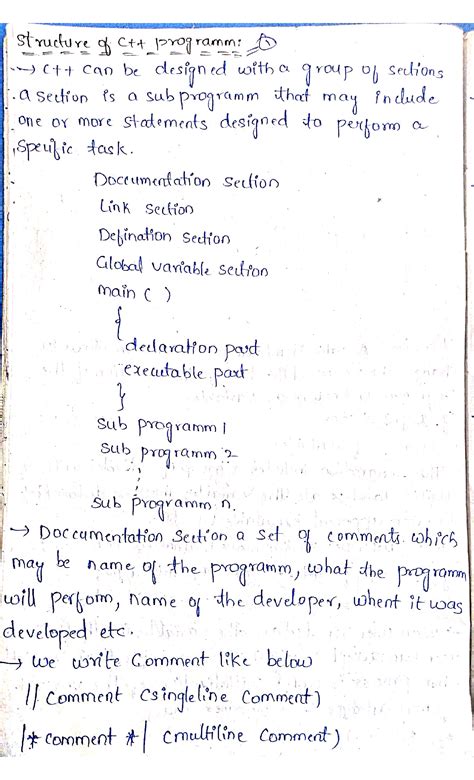 Structure of C++ programm: ①
→ C++ can be designed with a group of sections
. a section is a subprogramm that may include
one or more statements designed to perform a
specific task.
Doccumentation section
Link section
Defination section
Global variable section
main ( )
{
declaration part
executable part
}
Sub programm 1
Sub programm 2
⋮
Sub programm n.
→ Doccumentation Section a set of comments which
may be name of the programm, what the programm
will perform, name of the developer, whent it was
developed etc.
→ we write Comment like below
// Comment (singleline Comment)
/* comment */ (multiline Comment)